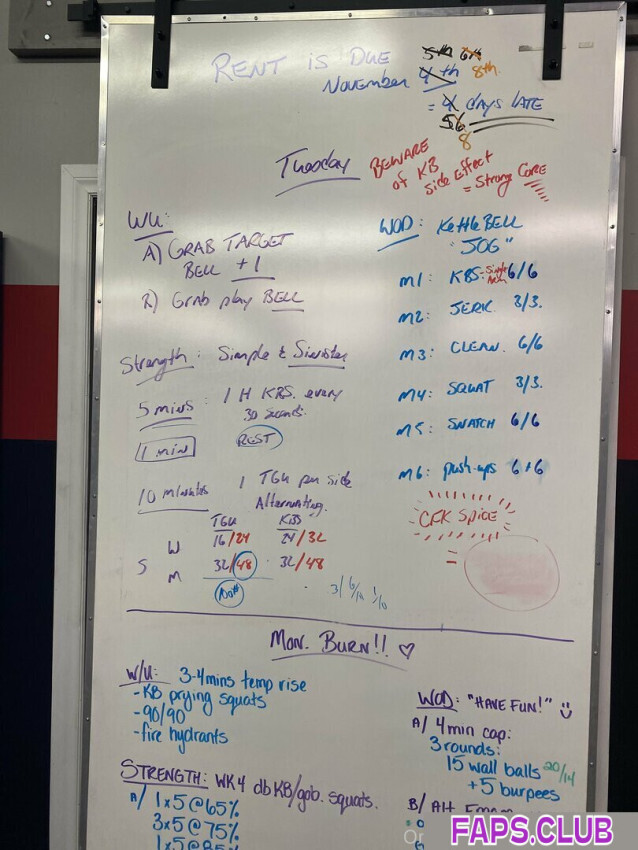 RENT IS DUE
November 4th 5th 6th 8th.
= 4 days LATE
56
8
Tuesday
BEWARE
of KB
side Effect
= Strong CORE
WU:
A) GRAB TARGET
BELL +1
B) Grab play BELL
Strength: Simple & Sinister
5 mins: 1 H KBS. every
30 seconds.
1 min REST
10 minutes 1 TGU per side
Alternating.
TGU KBS
W 16/24 24/32
S
M 32/48 32/48
3/ 6/10 1/10
WOD: KettleBELL
"JOG"
M1: KBS-Single Arm 6/6
M2: JERK 3/3.
M3: CLEAN. 6/6
M4: SQUAT 3/3.
M5: SNATCH 6/6
M6: push-ups 6+6
CFK SPICE
=
Mon. BURN!! ♡
W/U: 3-4mins temp rise
-KB prying squats
-90/90
-fire hydrants
STRENGTH: WK4 db KB/gob. squats.
A/ 1x5@65%
3x5@75%
1x5@85%
WOD: "HAVE FUN!"
A/ 4min cap:
3 rounds:
15 wall balls 20/14
+5 burpees
B/ Alt. Emom
Or
FAPS.CLUB